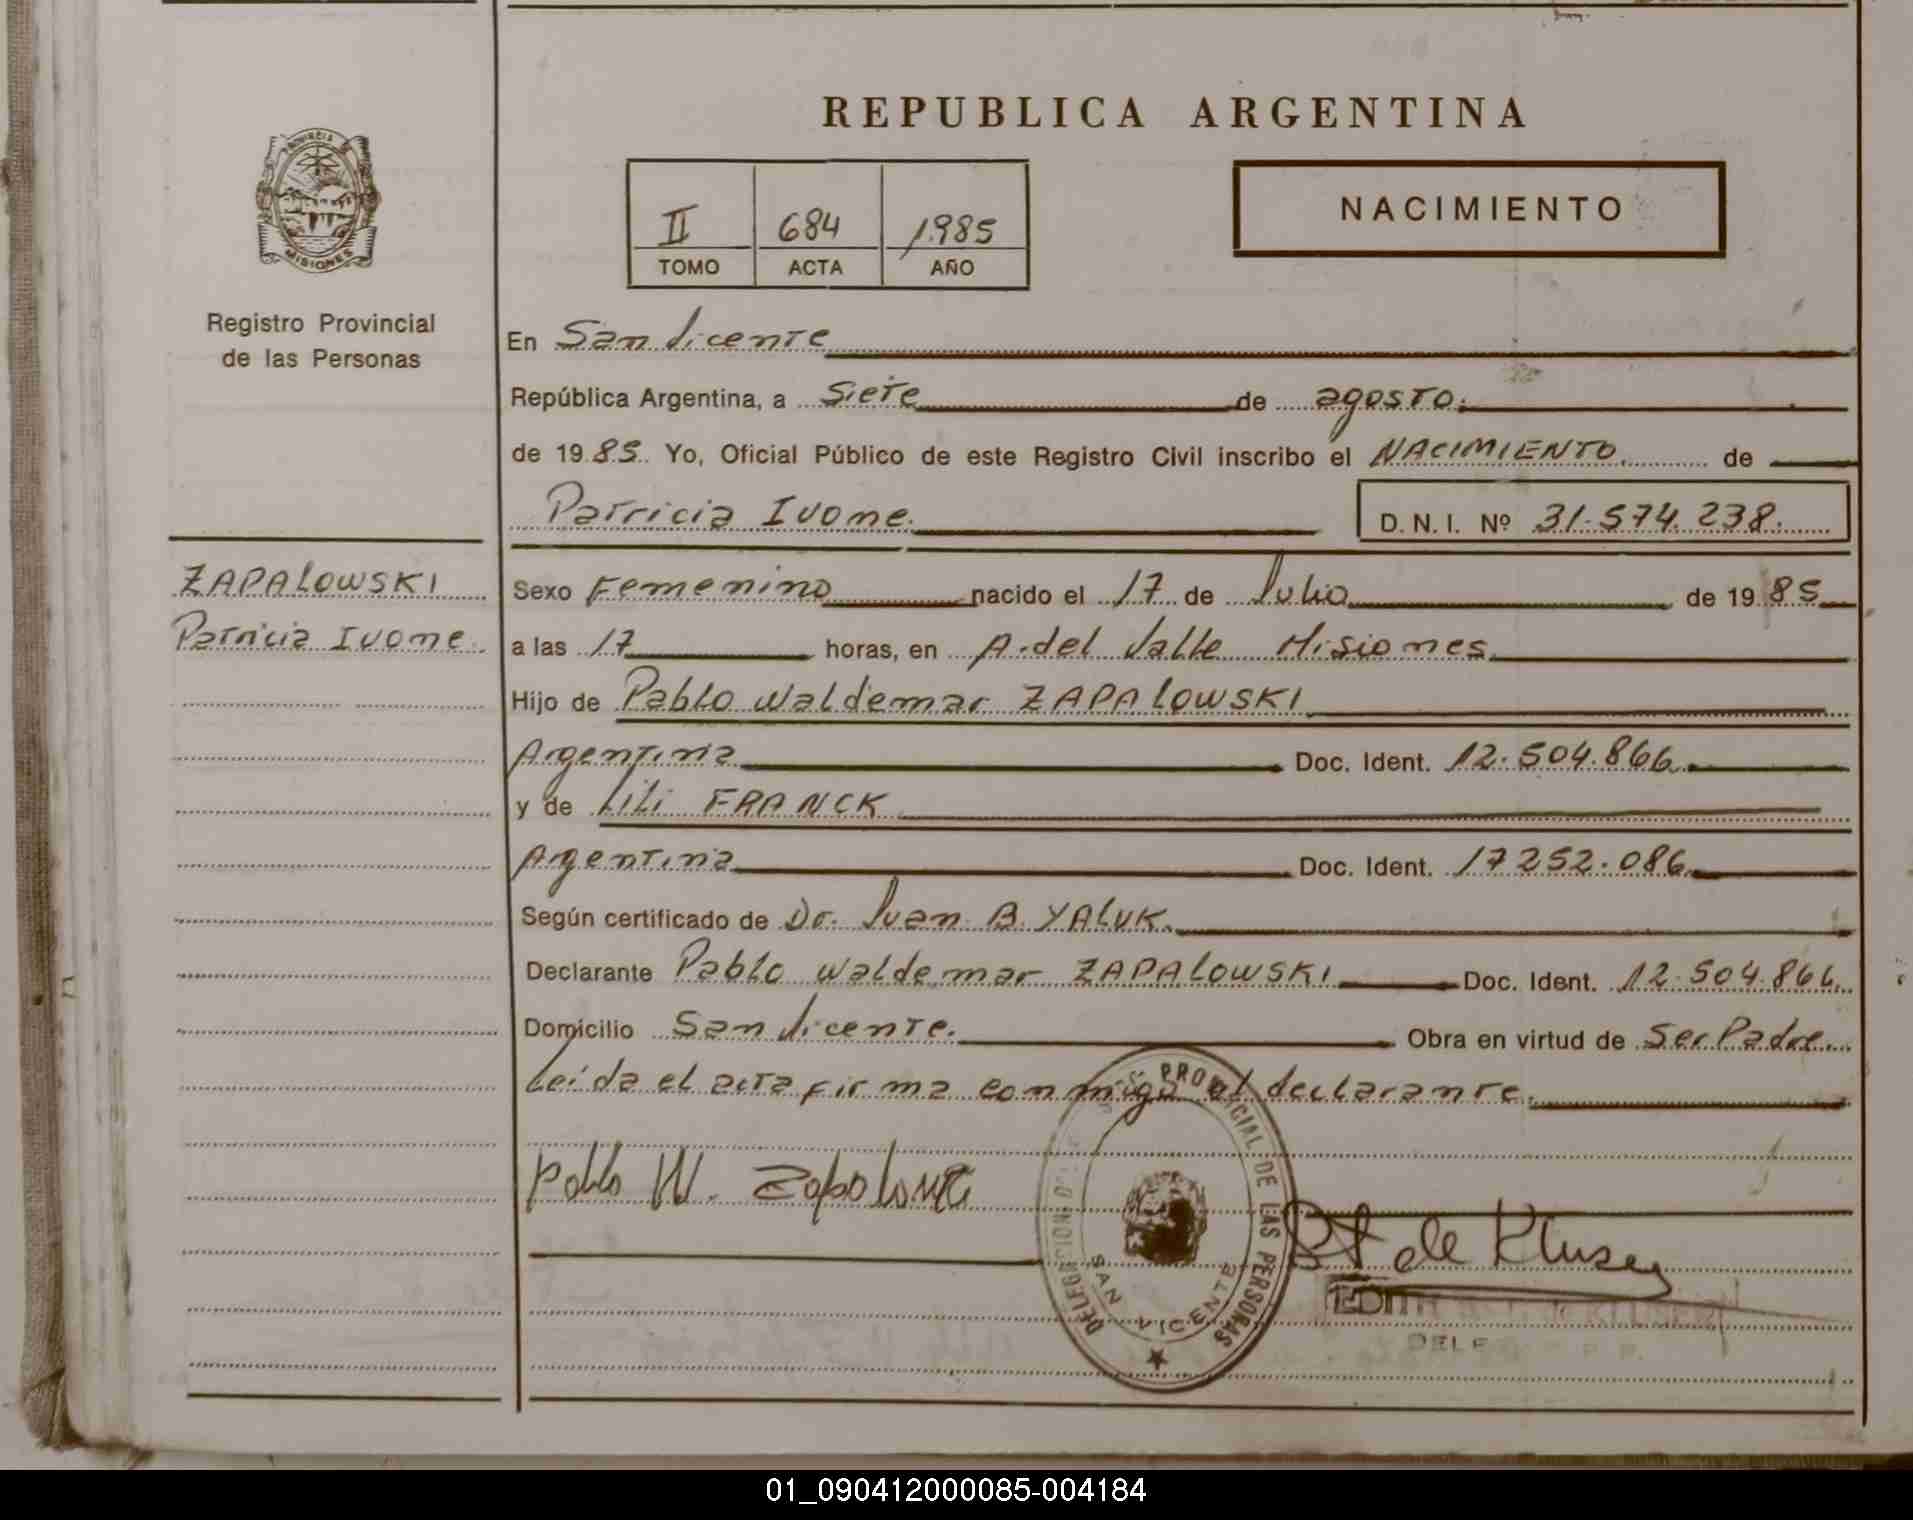 REPUBLICA ARGENTINA
PROVINCIA
MISIONES
II 684 1985
TOMO ACTA AÑO
NACIMIENTO
Registro Provincial
de las Personas
En San Vicente
República Argentina, a Siete de agosto.
de 19 85. Yo, Oficial Público de este Registro Civil inscribo el NACIMIENTO de
Patricia Ivone. D.N.I. Nº 31.574.238.
ZAPALOWSKI
Patricia Ivone.
Sexo Femenino nacido el 17 de Julio de 19 85
a las 17 horas, en A. del Valle Misiones
Hijo de Pablo Waldemar ZAPALOWSKI
Argentina Doc. Ident. 12.504.866
y de Lili FRANCK
Argentina Doc. Ident. 17252.086
Según certificado de Dr. Juan B. YALUK.
Declarante Pablo Waldemar ZAPALOWSKI Doc. Ident. 12.504.866.
Domicilio San Vicente. Obra en virtud de Ser Padre.
Leída el acta firma conmigo el declarante.
Pablo W.
DELEGACION PROVINCIAL DE LAS PERSONAS
SAN VICENTE
de
01_090412000085-004184